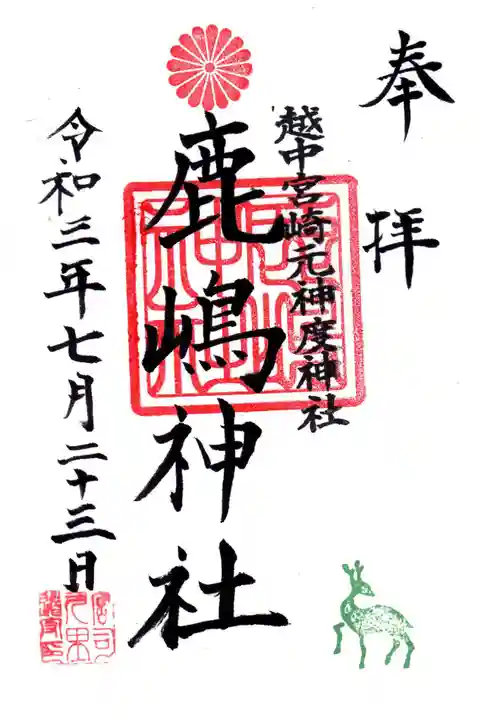 奉拝
越中宮崎元神度神社
鹿嶋神社
令和三年七月二十三日